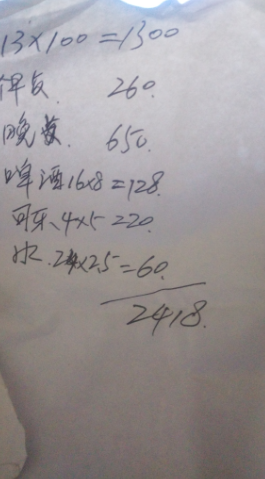 13×100=1300
押钱. 260.
晚餐. 650.
啤酒16×8=128.
可乐、4×5=20.
水.24×2.5=60.
2418.